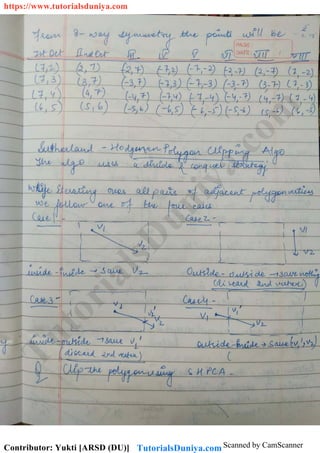 https://www.tutorialsduniya.com
From 8-way symmetry the points will be -
PAGE
DATE
1st Oct IInd Oct III IV V VI VII VIII
(7,2) (2,7) (-2,7) (-7,2) (-7,-2) (-2,-7) (2,-7) (7,-2)
(7,3) (3,7) (-3,7) (-7,3) (-7,-3) (-3,-7) (3,-7) (7,-3)
(7,4) (4,7) (-4,7) (-7,4) (-7,-4) (-4,-7) (4,-7) (7,-4)
(6,5) (5,6) (-5,6) (-6,5) (-6,-5) (-5,-6) (5,-6) (6,-5)
Sutherland - Hodgeman Polygon Clipping Algo
The algo uses a divide & conquer strategy
While iterating over all pairs of adjacent polygon vertices
we follow one of the four cases
Case 1 - Case 2 -
V1 V1
V2 V2
inside - inside → save V2 Outside - outside → save nothing
(discard 2nd vertex)
Case 3 - Case 4 -
V1 V1' V2 V1 V1' V2
inside - outside → save V1' outside - inside → save (V1', V2)
(discard 2nd vertex)
Q Clip the polygon using SHPCA -
TutorialsDuniya.com
Contributor: Yukti [ARSD (DU)] TutorialsDuniya.com Scanned by CamScanner